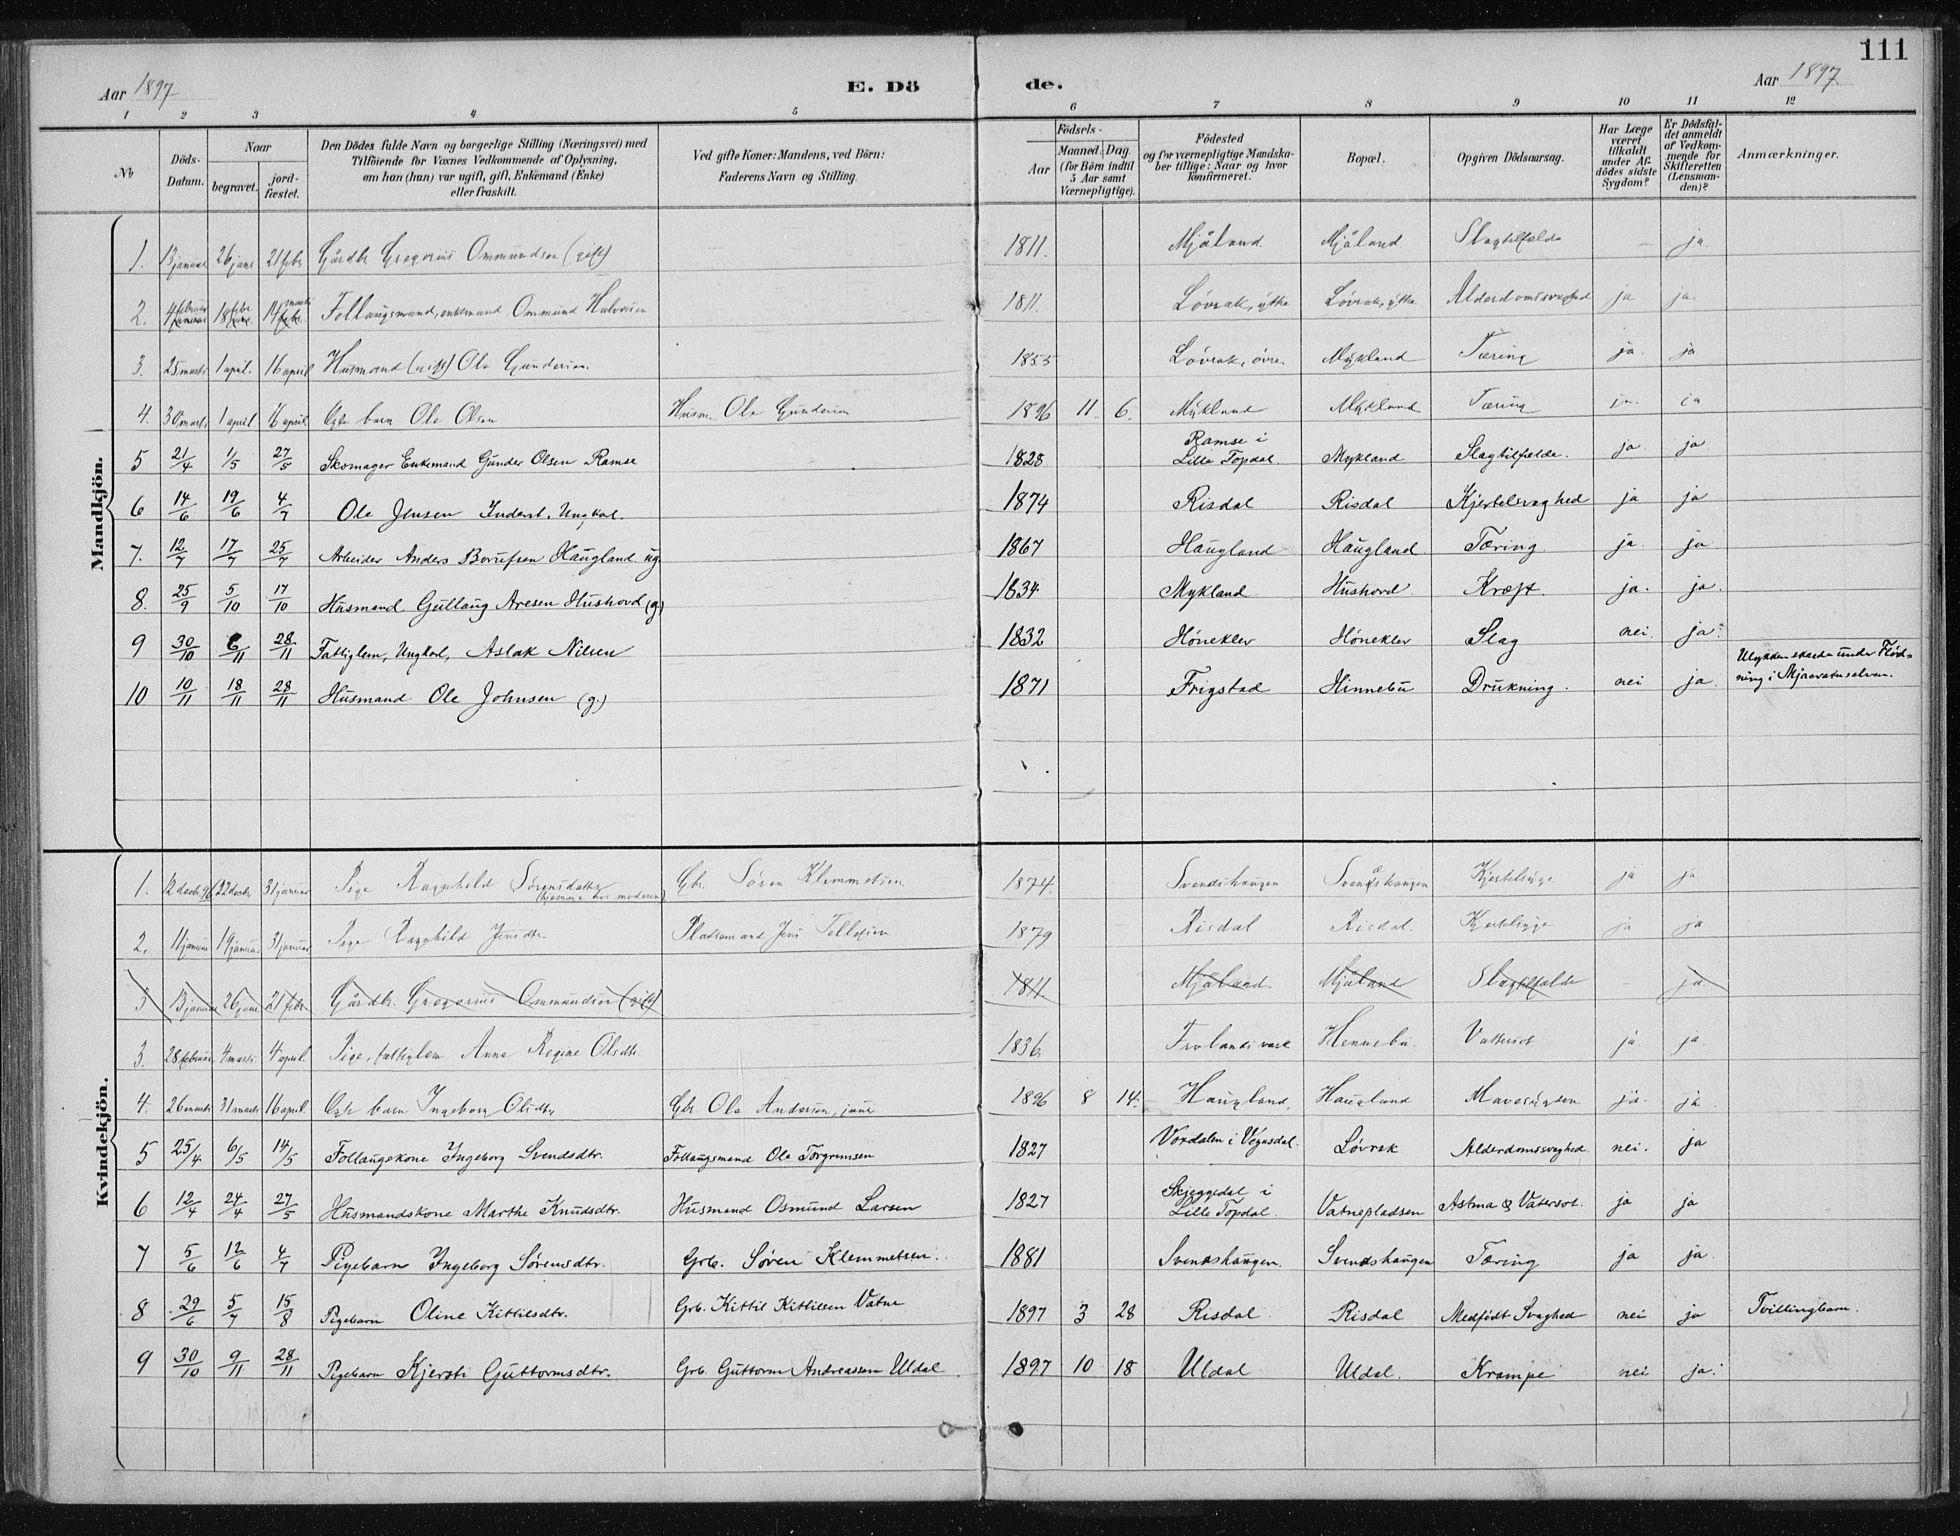 111
Aar 1897
E. Dö
de.
Aar 1897
1 2 3 4 5 6 7 8 9 10 11 12
No
Döds-Datum.
Naar
begravet.
jord-fæstet.
Den Dödes fulde Navn og borgerlige Stilling (Næringsvei) med
Tilföiende for Voxnes Vedkommende af Oplysning,
om han (hun) var ugift, gift, Enkemand (Enke)
eller fraskilt.
Ved gifte Koner: Mandens, ved Börn:
Faderens Navn og Stilling.
Födsels-
Aar
Maaned. Dag.
(for Börn indtil
5 Aar samt
Værnepligtige).
Födested
og for værnepligtige Mandska-
ber tillige: Naar og hvor
konfirmeret.
Bopæl.
Opgiven Dödsaarsag.
Har Læge
været
tilkaldt
under Af-
dödes sidste
Sygdom?
Er Dödsfal-
det anmeldt
af Vedkom-
mende for
Skifteretten
(Lensman-
den)?
Anmærkninger.
Mandkjön.
1. 13 januar 26 janr 21 febr Gårdbr Gregorius Ommundsen (gift) 1811. Mjåland Mjåland Slagtilfælde – ja
2. 4 februar januar 18 febr 14 marts febr. Follaugsmand, enkemand Ommund Halvorsen 1811. Løvrak, ytke Løvrak, ytke Alderdomssvaghed ja ja.
3. 25 marts 1 april. 16 april Husmand (gift) Ole Gundersen. 1855 Løvrak, øvre Mykland Tæring ja. ja
4. 30 marts 1 april 16 april. Egte barn Ole Olsen Husm. Ole Gundersen 1896 11. 6. Mykland Mykland Tæring ja. ja
5 21/4 1/5 27/5 Skomager Enkemand Gunder Olsen Ramse 1828 Ramse i Lille Topdal. Mykland Slagtilfælde. ja ja
6 14/6 19/6 4/7 Ole Jensen Inderst, Ungkarl. 1874 Risdal Risdal Kjertelsvaghed ja ja
7. 12/7 17/7 25/7 Arbeider Anders Borufsen Haugland ug. 1867 Haugland Haugland Tæring ja ja
8. 25/9 5/10 17/10 Husmand Gullaug Aresen Hushovd (g) 1834 Mykland Hushovd Kræft. ja. ja.
9 30/10 6/11 28/11 Fattiglem, Ungkarl, Aslak Nilsen 1832 Hönekler Hönekler Slag nei. ja.
10 10/11 18/11 28/11 Husmand Ole Johnsen (g.) 1871 Frigstad Hinnebu Drukning. nei ja. Ulykken skede under Flød-
ning i Mjaavatnselven.
Kvindekjön.
1. 12 decbr 96 22 decbr 31 januar Pige Ragnhild Sørensdatter (hjemme hos moderen) Gbr. Søren Klemmetsen 1874. Svendshaugen Svendshaugen Kjertelsyge ja ja
2. 11 januar 19 januar 31 januar Pige Ragnhild Jensdtr. Pladsemand Jens Tellefsen 1879 Risdal Risdal. Kjertelsyge ja ja
3 13 januar 26 janr 21 febr. Gårdbr. Gregorius Ommundsen (gift) 1811 Mjåland. Mjåland Slagtilfælde – ja
3. 28 februar 4 marts 4 april. Pige, fattiglem Anne Regine Olsdtr. 1836. Frolands værk Hennebu. Vattersot ja. ja.
4. 26 marts 31 marts 16 april. Egte barn Ingeborg Olsdtr Gbr. Ole Andersen, junr 1896 8 14. Haugland. Haugland ja. ja
5 25/4 6/5 14/5 Follaugskone Ingeborg Svendsdtr. Follaugsmand Ole Torgrimsen 1827 Vordalen i Vegusdal. Løvrak Alderdomssvaghed nei. ja
6 12/4 24/4 27/5 Husmandskone Marthe Knudsdtr. Husmand Osmund Larsen 1827 Skjeggedal i Lille Topdal. Vatnepladsen Astma & Vatersot. ja ja
7 5/6 12/6 4/7 Pigebarn Ingeborg Sørensdtr. Grb. Søren Klemmetsen. 1881 Svendshaugen. Svendshaugen Tæring ja ja.
8 29/6 5/7 15/8 Pigebarn Oline Kittilsdtr. Grb. Kittil Kittilsen Vatne 1897 3 28 Risdal Risdal Medfødt Svaghed nei ja Tvillingbarn.
9 30/10 9/11 28/11 Pigebarn Kjersti Guttormsdtr. Grb. Guttorm Andreassen Uldal. 1897 10 18 Uldal Uldal. Krampe nei ja.